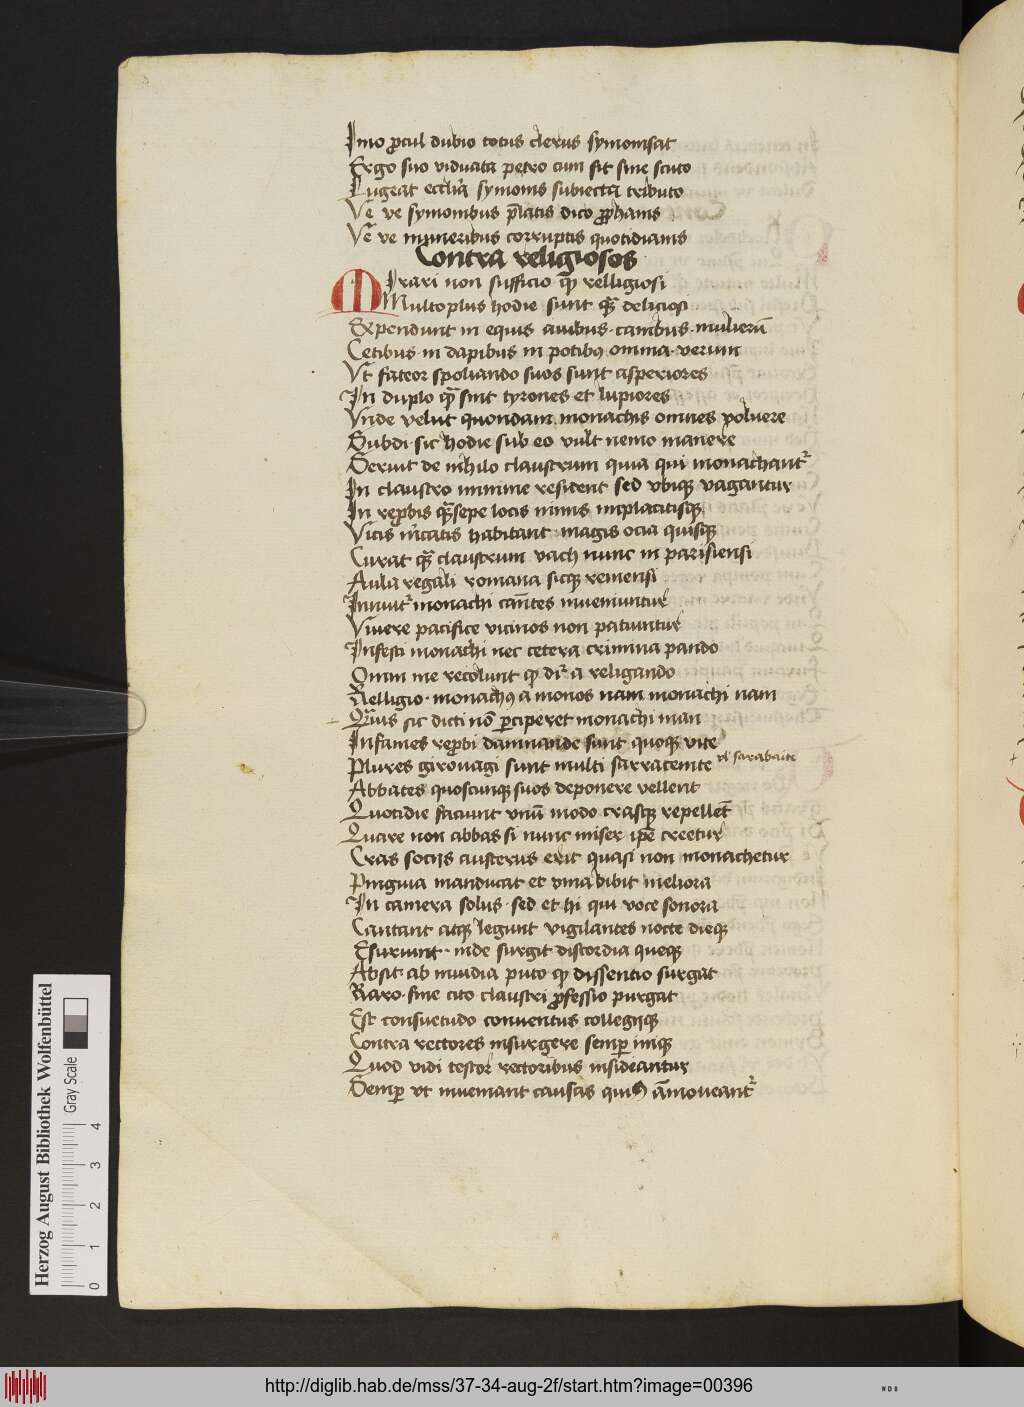 Imo ꝓcul dubio totus clerus symonisat
Ergo suo viduata petro cum sit sine scuto
Lugeat eccl̄ia symonis subiecta tributo
Ve ve symonibus p̄latis dico ꝓphanis
Ve ve muneribus corruptis quotidianis
Contra religiosos
Mirari non sufficio ꝙ relligiosi
Multoplus hodie sunt quā deliciosi
Expendunt in equis auibus canibus mulierū
Cetibus in dapibus in potibꝰ omnia verum
Vt fateor spoliando suos sunt asperiores
In duplo quā sint tyrones et lupiores
Vnde velut quondam monachis omnes voluere
Subdi sic hodie sub eo vult nemo manere
Seruit de nihilo claustrum quia qui monachantr̄
In claustro minime resident sed vbiqꝫ vagantur
In reꝓbis sepe locis nimis implacitisqꝫ
Vicis habitant magis ocia quisqꝫ
Curat quā claustrum vach nunc in parisiensi
Aula regali romana sicqꝫ remensi
monachi inueniuntur
Viuere pacifice vicinos non patiuntur
Infesti monachi nec cetera crimina pando
me recolunt ꝙ dr̄ a religando
Relligio monachꝰ a monos nam monachi nam
sic dicti nō ꝑciperet monachi man
Infames reꝓbi damnande sunt quoqꝫ vite
Plures girouagi sunt multi sarraceinte vl sarabaite
Abbates quoscunqꝫ suos deponere vellent
Quotidie faciunt vnū modo crasqꝫ repellēt
Quare non abbas si nunc miser ip̄e creetur
Cras socijs austerus erit quasi non monachetur
Pinguia manducat et vina bibit meliora
In camera solus sed et hi qui voce sonora
Cantant atqꝫ legunt vigilantes nocte dieqꝫ
Esuriunt inde surgit discordia queqꝫ
Absit ab inuidia puto ꝙ dissentio surgat
Raro sine cito claustri ꝓfessio purgat
Est consuetudo conuentus collegijqꝫ
Contra rectores insurgere semꝑ iniqꝫ
Quod vidi testor rectoribus insideantur
Semꝑ vt inueniant causas āmoueantr̄
Herzog August Bibliothek Wolfenbüttel
Gray Scale
0 1 2 3 4
http://diglib.hab.de/mss/37-34-aug-2f/start.htm?image=00396